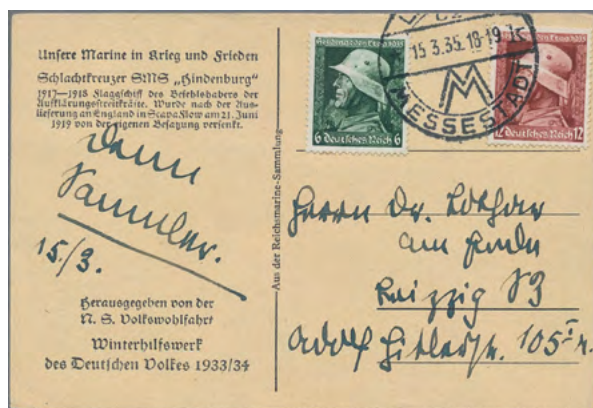 Unsere Marine in Krieg und Frieden
Schlachtkreuzer SMS „Hindenburg“
1917–1918 Flaggschiff des Befehlshabers der
Aufklärungsstreitkräfte. Wurde nach der Aus-
lieferung an England in Scapa Flow am 21. Juni
1919 von der eigenen Besatzung versenkt.
Dem
Sammler.
15./3.
Herausgegeben von der
N. S. Volkswohlfahrt
Winterhilfswerk
des Deutschen Volkes 1933/34
Aus der Reichsmarine-Sammlung
6 Deutsches Reich 6
15.3.35.18-19
M
MESSESTADT
12 Deutsches Reich 12
Herrn Dr. Lothar
am Ende
Leipzig S3
Adolf Hitlerstr. 105